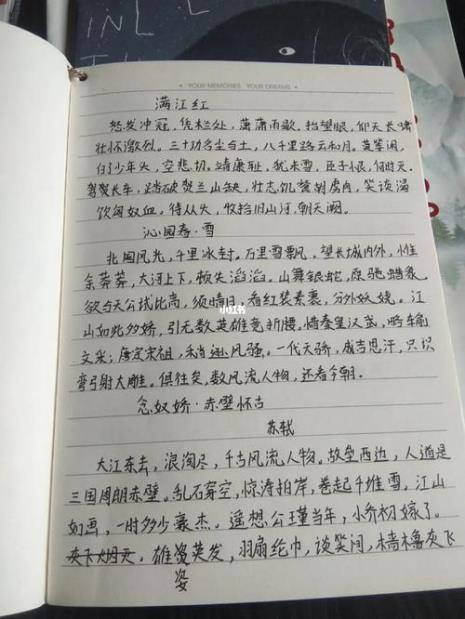 INL
• YOUR MEMORIES YOUR DREAMS •
满江红
怒发冲冠，凭栏处，萧萧雨歇，抬望眼，仰天长啸
壮怀激烈。三十功名尘与土，八千里路云和月。莫等闲，
白了少年头，空悲切。靖康耻，犹未雪，臣子恨，何时灭。
驾长车，踏破贺兰山缺，壮志饥餐胡虏肉，笑谈渴
饮匈奴血。待从头，收拾旧山河，朝天阙。
沁园春·雪
北国风光，千里冰封。万里雪飘。望长城内外，惟
余莽莽，大河上下，顿失滔滔。山舞银蛇，原驰蜡象，
欲与天公试比高，须晴日，看红装素裹，分外妖娆。江
山如此多娇，引无数英雄竞折腰，惜秦皇汉武，略输
文采；唐宗宋祖，稍逊风骚。一代天骄，成吉思汗，只识
弯弓射大雕。俱往矣，数风流人物，还看今朝。
小红书
念奴娇·赤壁怀古
苏轼
大江东去，浪淘尽，千古风流人物。故垒西边，人道是
三国周朗赤壁。乱石穿空，惊涛拍岸，卷起千堆雪。江山
如画，一时多少豪杰。遥想公瑾当年，小乔初嫁了。
雄姿英发，羽扇纶巾，谈笑间，樯橹灰飞
姿